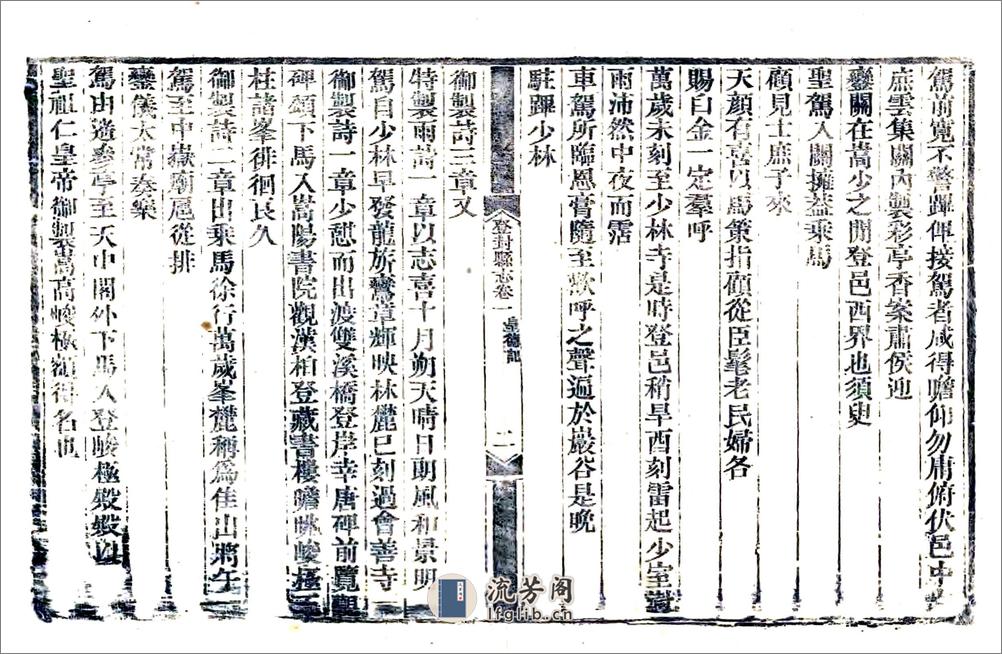 駕前寬不警蹕俾接駕者咸得瞻仰勿庸俯伏邑中士
庶雲集關內製彩亭香案肅侯迎
鑾關在嵩少之閒登邑西界也須臾
聖駕入關擁葢乘馬
顧見士庶子來
天顏有喜以馬策指顧從臣髦老民婦各
賜白金一定羣呼
萬歲未刻至少林寺是時登邑稍旱酉刻雷起少室澍
雨沛然中夜而霑
車駕所臨恩膏隨至歡呼之聲遍於巖谷是晚
駐蹕少林
登封縣志卷一 皇德記 二
御製詩三章又
特製雨詩一章以志喜十月朔天晴日朗風和景明
駕自少林早發龍旂鸞章輝映林麓巳刻過會善寺
御製詩一章少憇而出渡雙溪橋登岸幸唐碑前覽觀
碑頌下馬入嵩陽書院觀漢柏登藏書樓瞻眺峻極
柱諸峯徘徊良久
御製詩二章出乘馬徐行萬歲峯麓稱爲佳山將午
駕至中嶽廟扈從排
鑾儀太常奏樂
駕由遙參亭至天中閣外下馬入登峻極殿殿以
聖祖仁皇帝御製嵩高峻極額得名也
流芳阁
lfglib.cn